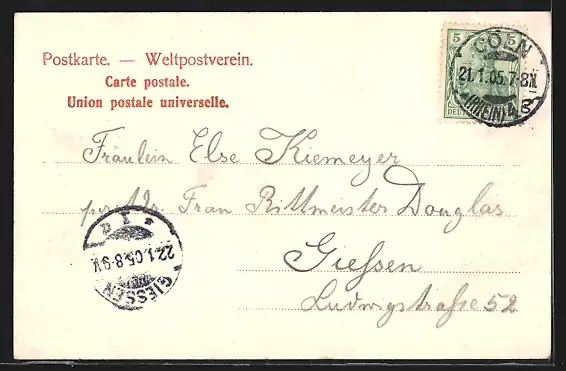 Postkarte. — Weltpostverein.
Carte postale.
Union postale universelle.
5 5
CÖLN
21.1.05.7-8N.
(RHEIN) 4
Fräulein Else Kiemeyer
Frau Rittmeister Douglas
Giessen
Ludwigstraße 52
22.1.05.8-9V.
GIESSEN